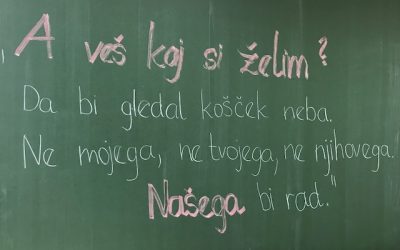 "A veš kaj si želim?
Da bi gledal košček neba.
Ne mojega, ne tvojega, ne njihovega.
Našega bi rad."